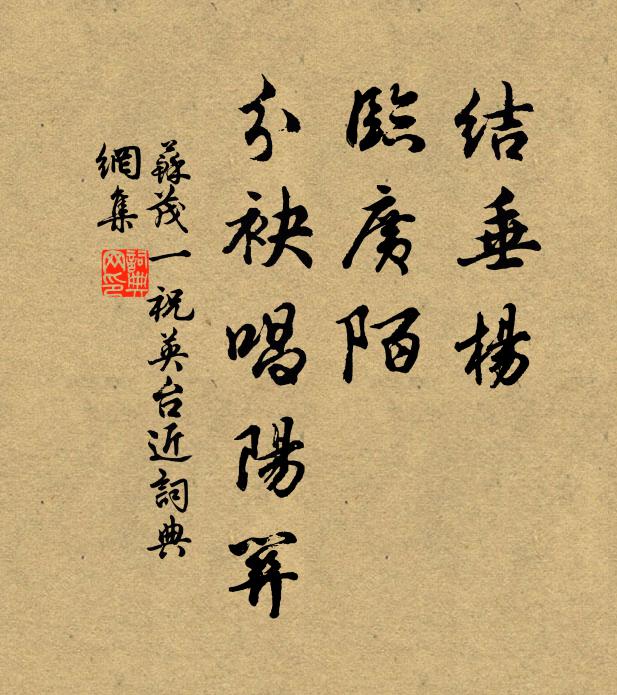 結垂楊
臨廣陌
分袂唱陽關
蘇茂一祝英台近詞典
網集
詞典
网印